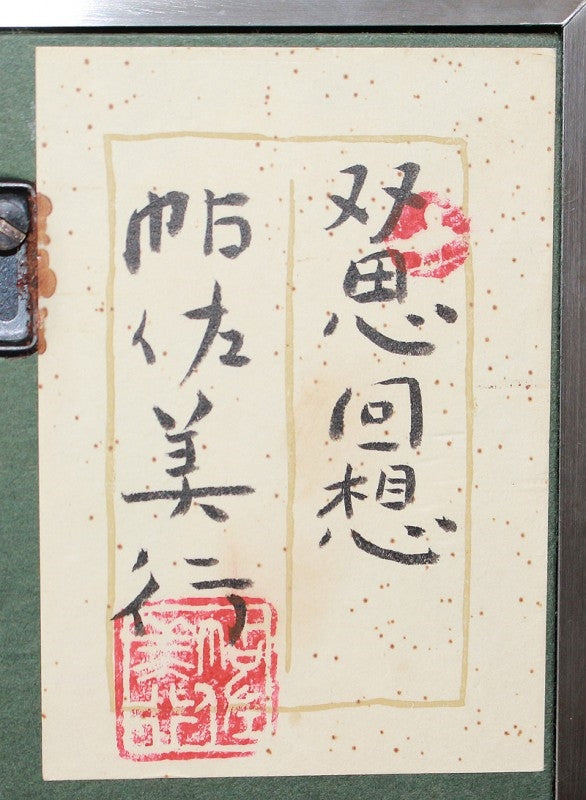 双思回想
帖佐美行
帖佐美行